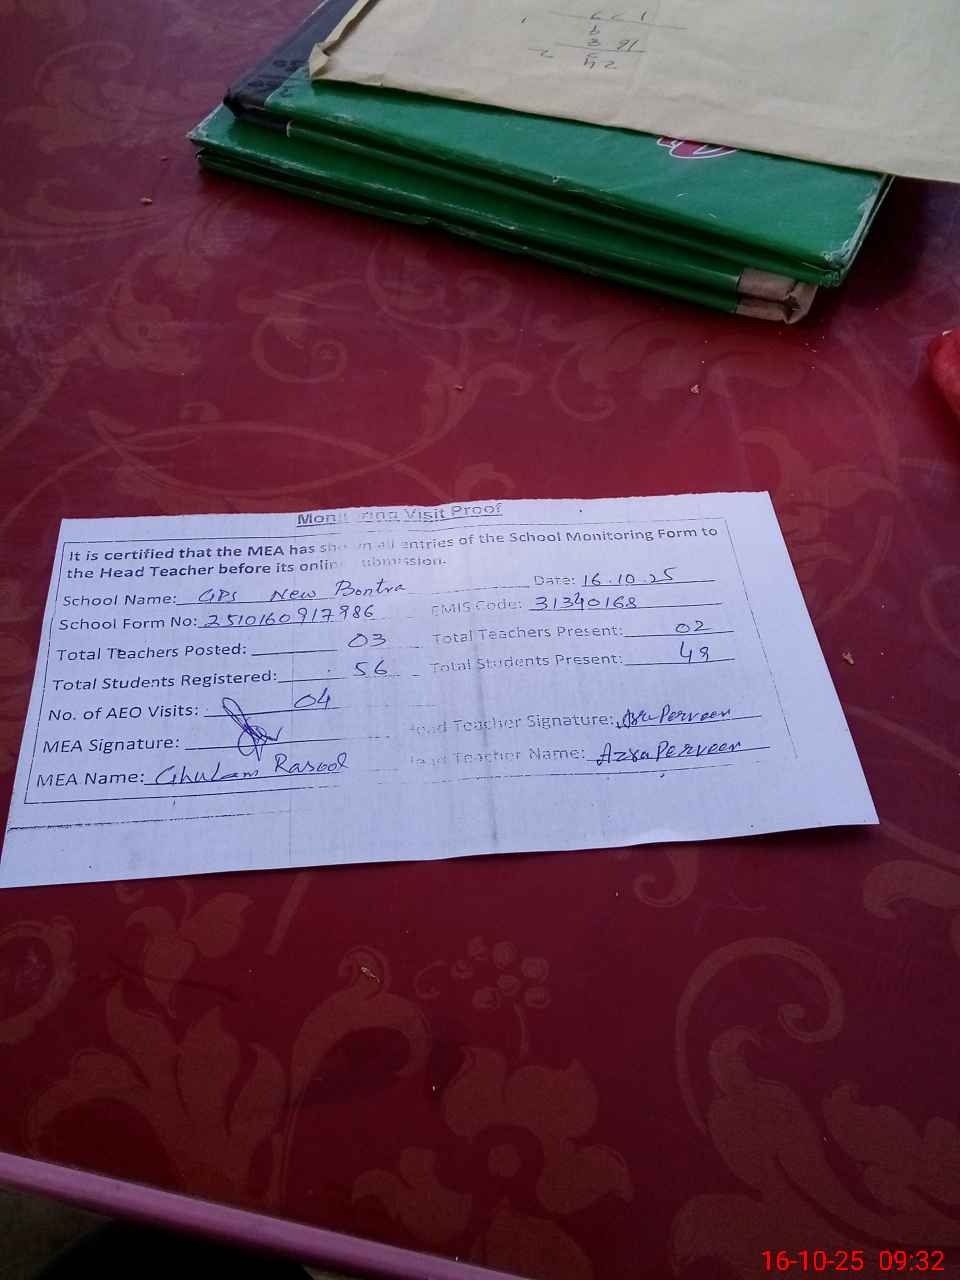 Monitoring Visit Proof
It is certified that the MEA has shown all entries of the School Monitoring Form to
the Head Teacher before its online submission.
School Name: GPS New Bontra Date: 16.10.25
School Form No: 2510160917986 EMIS Code: 31340168
Total Teachers Posted: 03 Total Teachers Present: 02
Total Students Registered: 56 Total Students Present: 49
No. of AEO Visits: 04
MEA Signature: Head Teacher Signature: Azra Perveen
MEA Name: Ghulam Rasool Head Teacher Name: Azra Perveen
16-10-25 09:32